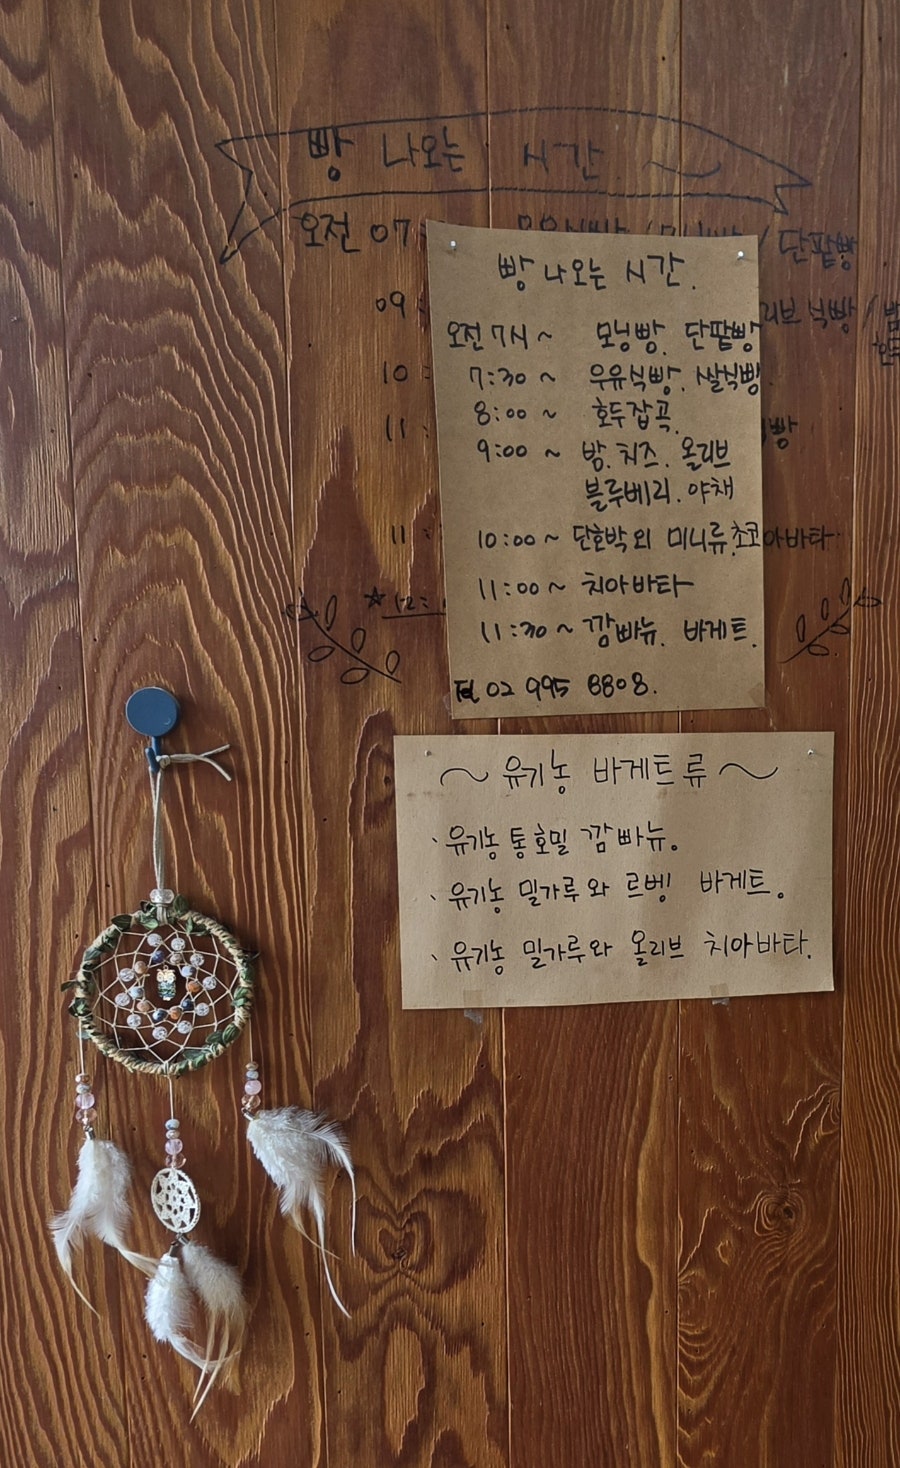 빵 나오는 시간
오전 07 단팥빵
09: 리브식빵 /
10:
11: 빵
11:
빵 나오는 시간.
오전 7시 ~ 모닝빵. 단팥빵
7:30 ~ 우유식빵. 쌀식빵.
8:00 ~ 호두잡곡.
9:00 ~ 밤. 치즈. 올리브
블루베리. 야채
10:00 ~ 단호박 외 미니류. 초코아바타
11:00 ~ 치아바타
11:30 ~ 깜빠뉴. 바게트.
Tel 02 995 8808.
~ 유기농 바게트류 ~
· 유기농 통호밀 깜빠뉴。
· 유기농 밀가루와 르벵 바게트。
· 유기농 밀가루와 올리브 치아바타.